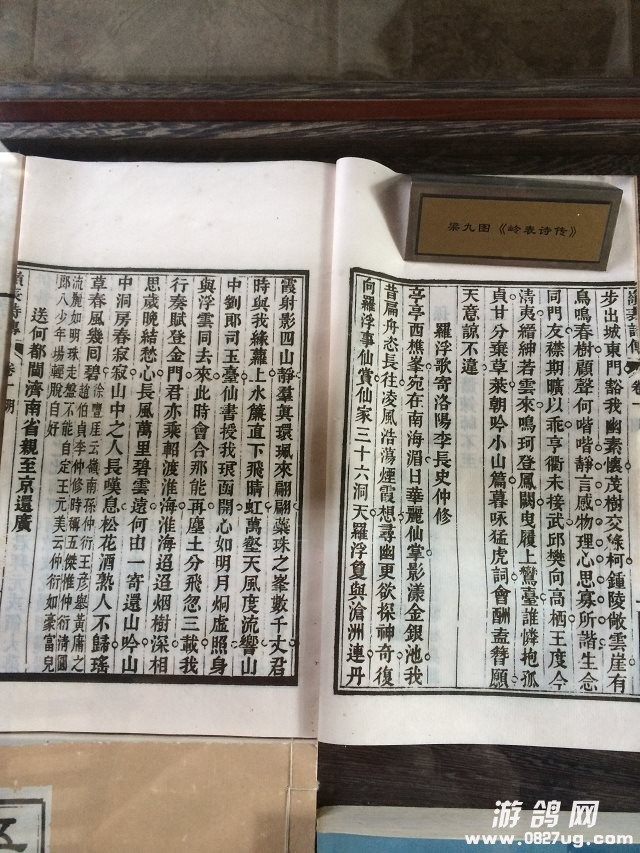 梁九图《岭表诗传》
步出城東門豁我幽素懷茂樹交條柯鍾陵敞雲崖有
鳥鳴春樹顧聲何喈喈靜言感物理心思寡所諧生念
同門友襟期曠以乖亨衢未接武邱樊向高棲王度今
清夷縉紳若雲來鳴珂登鳳闕曳履上鸞臺誰憐抱孤
貞甘分棄草萊朝吟小山篇暮咏猛虎詞會酬盍簪願
天意諒不違
羅浮歌寄洛陽李長史仲修
亭亭西樵峯宛在南海湄日華麗仙掌影漾金銀池我
昔扁舟恣長往凌風浩蕩煙霞想尋幽更欲探神奇復
向羅浮事仙賞仙家三十六洞天羅浮夐與滄洲連丹
霞射影四山靜羣真環珮來翩翩藥珠之峯數千丈君
時與我緣蘿上水簾直下飛晴虹萬壑天風度流響山
中劉郎司玉臺仙書授我琅函開心如明月炯虛照身
與浮雲同去來此時會合那能再塵土分飛忽三載我
行奏賦登金門君亦乘軺渡淮海淮海迢迢烟樹深相
思歲晚結愁心長風萬里碧雲遠何由一寄還山吟山
中洞房春寂寂山中之人長嘆息松花酒熟人不歸瑤
草春風幾囘碧
徐豐厓云嶺南孫仲衍王彥舉黃庸之
趙伯貞李仲修時稱五傑惟仲衍清圓
流麗如明珠走盤不能自定王元美云仲衍如豪富兒
郎八少年場輕脫自好
送何都閫濟南省親至京還廣
游鸽网
www.0827ug.com